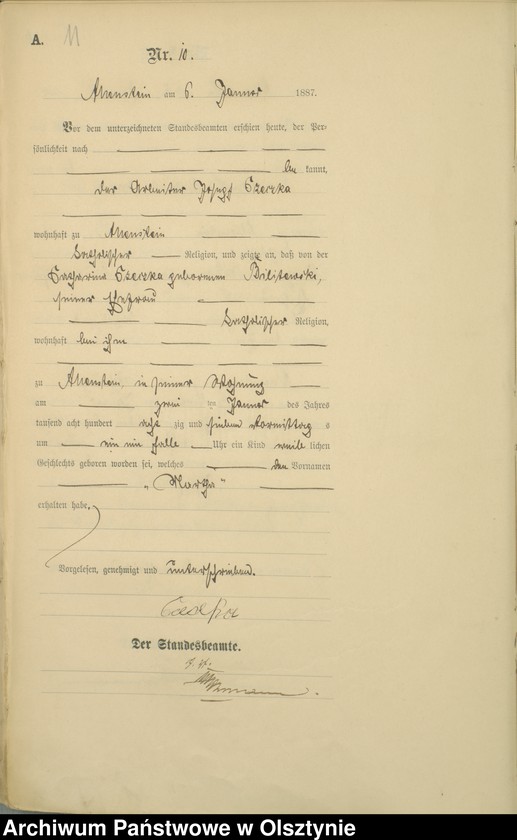 A. 11
Nr. 10.
Allenstein am 6. Januar 1887.
Vor dem unterzeichneten Standesbeamten erschien heute, der Per-
sönlichkeit nach
be kannt,
der Arbeiter Joseph
wohnhaft zu Allenstein
katholischer Religion, und zeigte an, daß von der
Catharina geborenen
seiner Ehefrau
katholischer Religion,
wohnhaft bei ihm
zu Allenstein, in seiner Wohnung
am zwei ten Januar des Jahres
tausend acht hundert acht zig und sieben Vormittag s
um ein ein halb Uhr ein Kind weib lichen
Geschlechts geboren worden sei, welches den Vornamen
„Martha"
erhalten habe.
Vorgelesen, genehmigt und unterschrieben.
Der Standesbeamte.
Archiwum Państwowe w Olsztynie